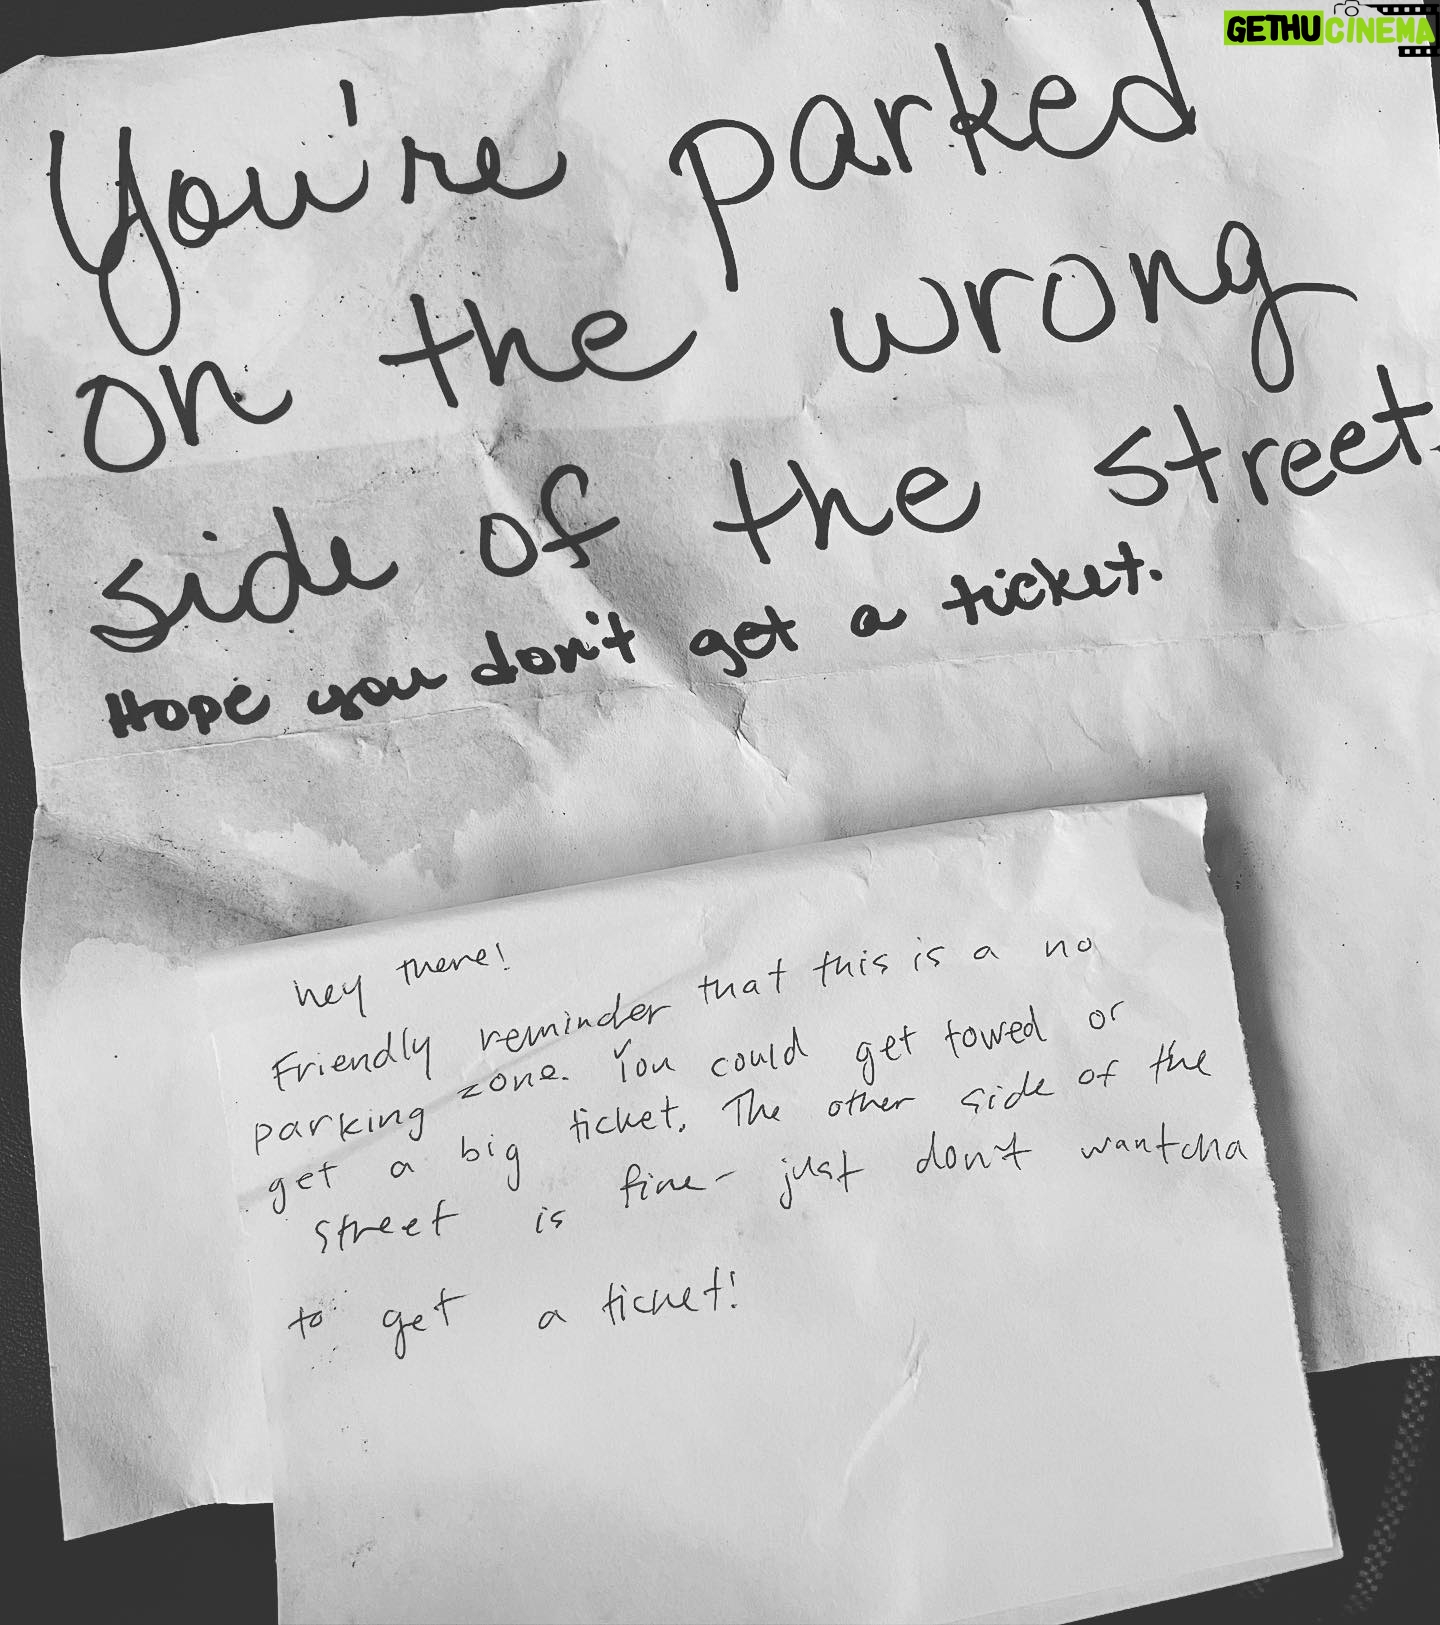 GETHUCINEMA
You're parked
on the wrong
side of the street.
Hope you don't get a ticket.
hey there!
Friendly reminder that this is a no
parking zone. You could get towed or
get a big ticket. The other side of the
street is fine - just don't wantcha
to get a ticket!